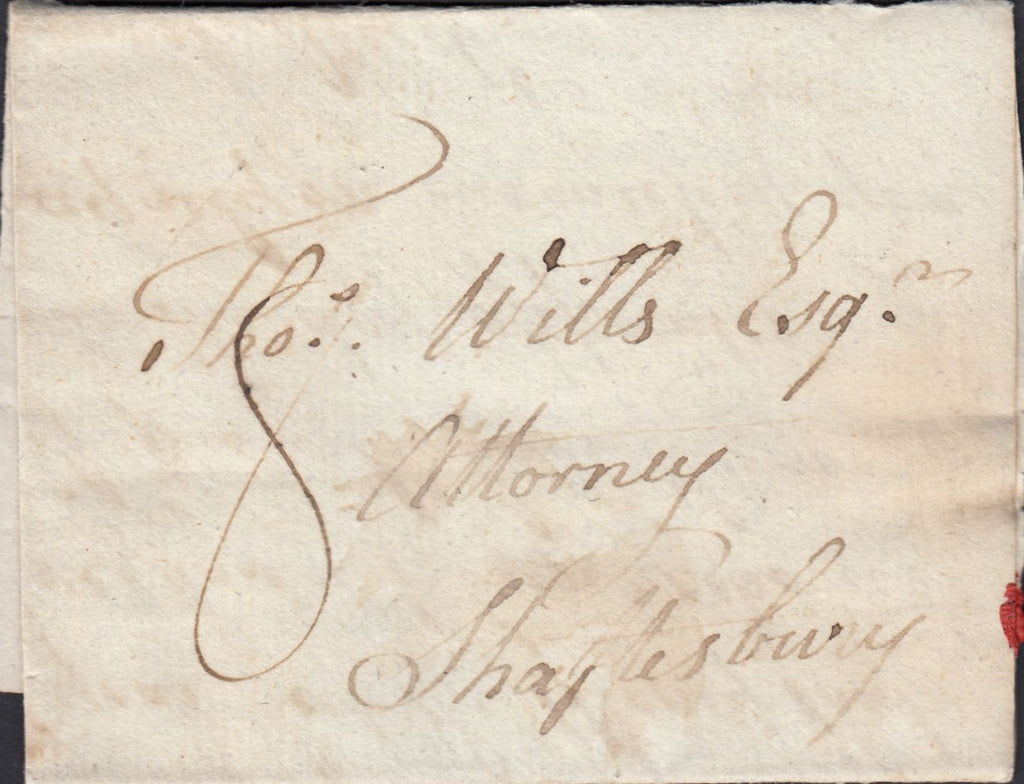 Thos. Wills Esqr.
Attorney
Shaftesbury
8